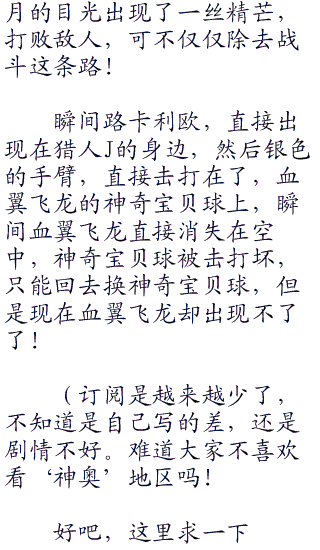 月的目光出现了一丝精芒，
打败敌人，可不仅仅除去战
斗这条路！
瞬间路卡利欧，直接出
现在猎人J的身边，然后银色
的手臂，直接击打在了，血
翼飞龙的神奇宝贝球上，瞬
间血翼飞龙直接消失在空
中，神奇宝贝球被击打坏，
只能回去换神奇宝贝球，但
是现在血翼飞龙却出现不了
了！
（订阅是越来越少了，
不知道是自己写的差，还是
剧情不好。难道大家不喜欢
看‘神奥’地区吗！
好吧，这里求一下